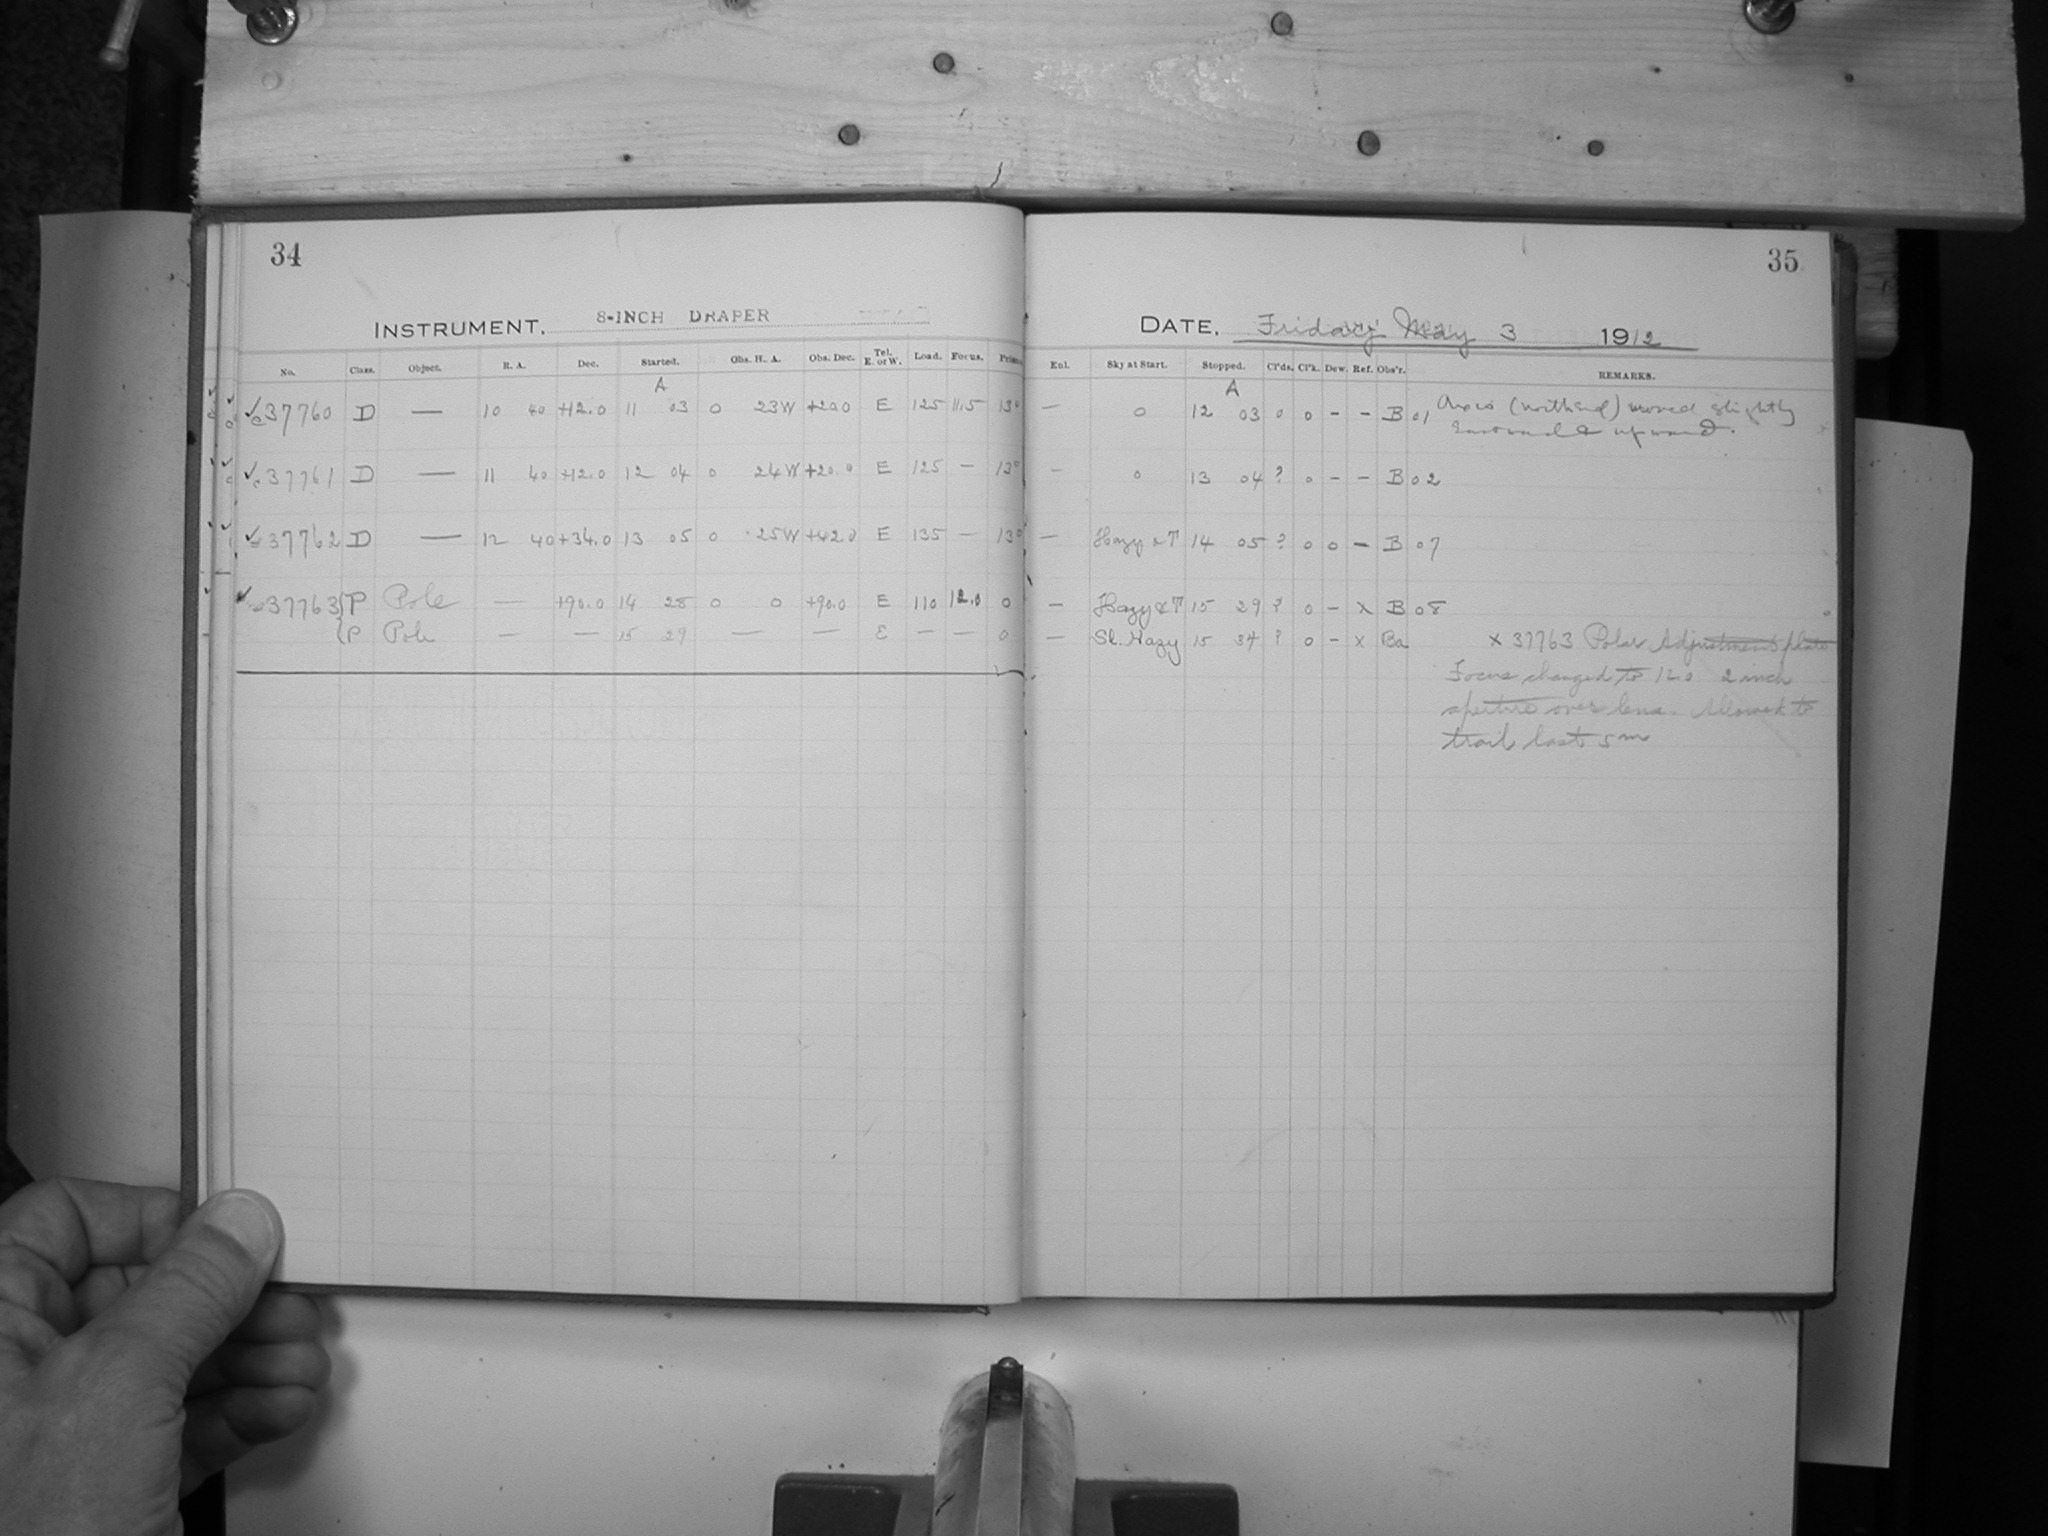 34
INSTRUMENT. 8-INCH DRAPER
No. Class. Object. R. A. Dec. Started. Obs. H. A. Obs. Dec. Tel. E. or W. Load. Focus.
A
37760 D — 10 40 +12.0 11 03 0 23W +20.0 E 125 11.5 13°
37761 D — 11 40 +12.0 12 04 0 24W +20.0 E 125 — 13°
37762 D — 12 40 +34.0 13 05 0 25W +42.0 E 135 — 13°
37763 P Pole — +90.0 14 28 0 0 +90.0 E 110 12.0 0
P Pole — — 15 29 — — E — — 0
35
DATE. Friday May 3 1912
Enl. Sky at Start. Stopped. Cl'ds. Cl'k. Dew. Ref. Obs'r. REMARKS.
A
— 0 12 03 0 0 – – B 01 Axis (north end) moved slightly
Eastward & upward.
– 0 13 04 ? 0 – – B 02
— Hazy & T 14 05 ? 0 0 – B 07
— Hazy & T 15 29 ? 0 – x B 08
— Sl. Hazy 15 34 ? 0 – x Ba x 37763 Polar Adjustment plate
Focus changed to 12.0 2 inch
aperture over lens. Allowed to
trail last 5m